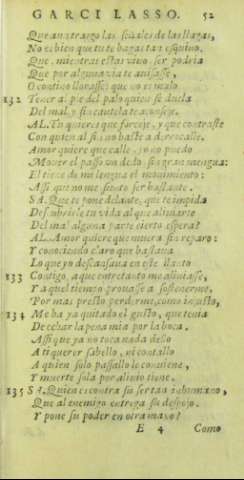 GARCI LASSO. 52
Que aun traygo las señales de las llagas,
No es bien que tu te hagas tan esquiuo,
Que, mientras estas viuo, ser podria
Que por alguna via te auisasse,
O contigo llorasse: que no es malo
132 Tener al pie del palo quien se duela
Del mal, y sin cautela te aconseje.
AL. Tu quieres que forceje, y que contraste
Con quien al fin no baste a derrocalle.
Amor quiere que calle, yo no puedo
Mouer el passo vn dedo sin gran mengua:
El tiene de mi lengua el mouimiento:
Assi que no me siento ser bastante.
SA. Que te pone delante, que te impida
Descubrirle tu vida al que aliuiarte
Del mal alguna parte cierto espera?
AL. Amor quiere que muera sin reparo:
Y conociendo claro que bastaua
Lo que yo descansaua en este llanto
133 Contigo, a que entretanto me aliuiasse,
Y aquel tiempo prouasse a sostenerme,
Por mas presto perderme, como injusto,
134 Me ha ya quitado el gusto, que tenia
De echar la pena mia por la boca.
Assi que ya no toca nada dello
A ti querer sabello, ni contallo
A quien solo passallo le conuiene,
Y muerte sola por aliuio tiene.
135 SA. Quien es contra si serta inhumano,
Que al enemigo entrega su despojo.
Y pone su poder en otra mano?
E 4 Como